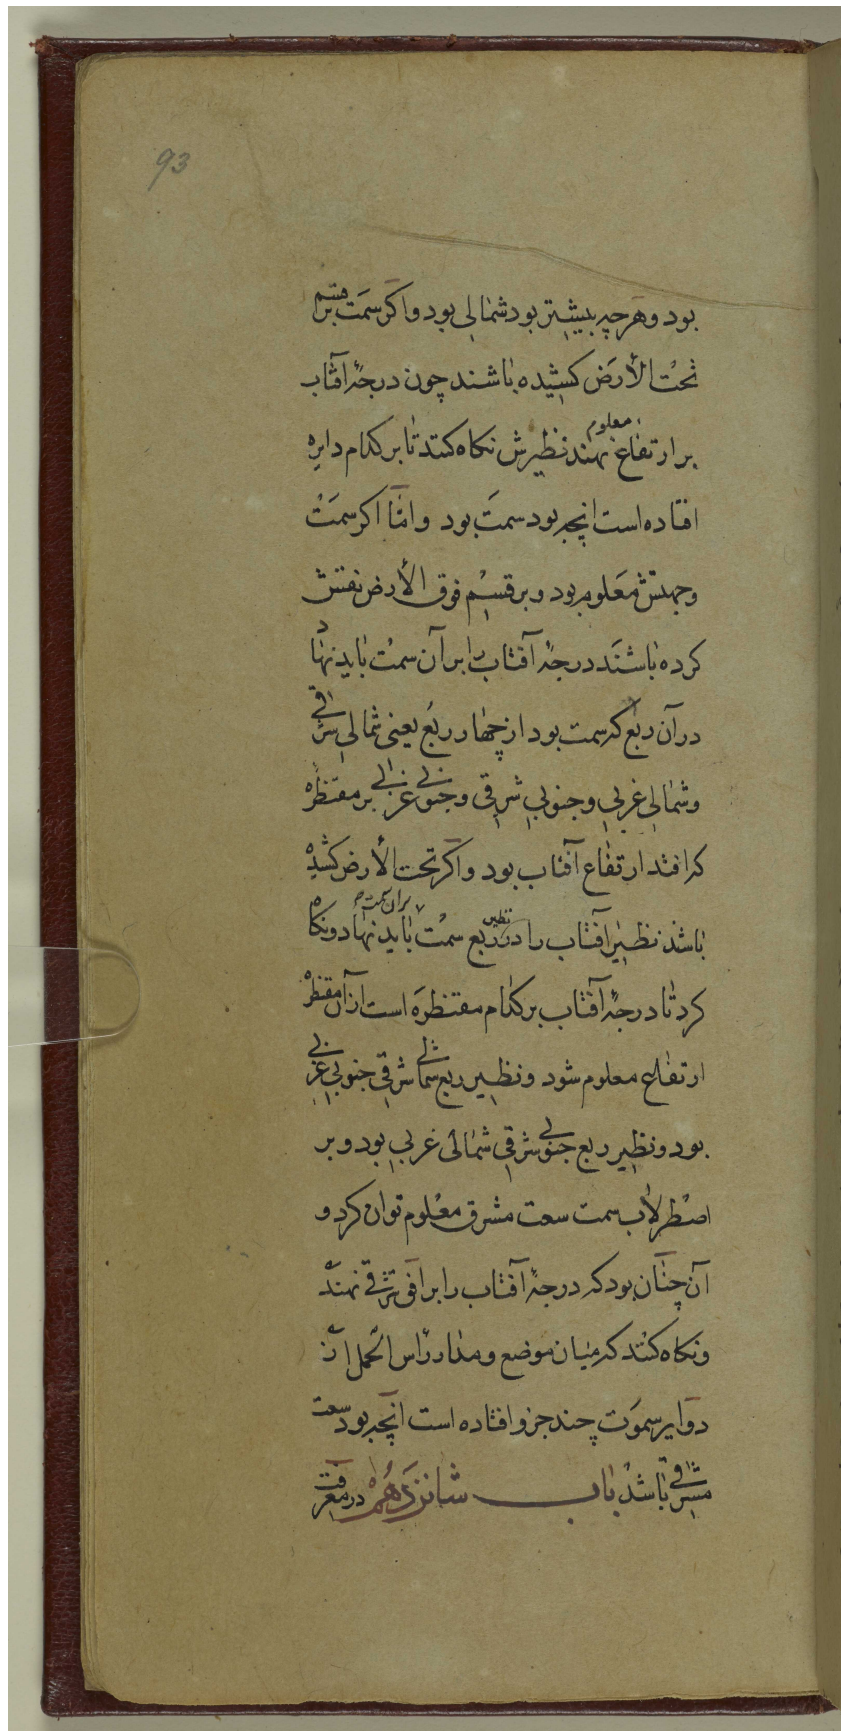 93
بود و هرچه بیشتر بود شمالی بود و اکر سمت بر قسم
تحت الأرض کشیده باشند چون درجهٔ آفتاب
بر ارتفاع معلوم نهند نظیرش نکاه کنند تا بر کدام دایره
افتاده است انچه بود سمت بود و امّا اکر سمت
وجهتش معلوم بود و بر قسم فوق الأرض نقش
کرده باشند درجهٔ آفتاب را بر آن سمت باید نهاد
در آن ربع که سمت بود از چهار ربع یعنی شمالی شرقی
و شمالی غربی و جنوبی شرقی و جنوبی غربی بر مقنطره
که افتد ارتفاع آفتاب بود و اکر تحت الأرض کشیده
باشد نظیر آفتاب را در نظیر ربع سمت بر ان سمت باید نهاد و نکاه
کرد تا درجهٔ آفتاب بر کدام مقنطره است از آن مقنطره
ارتفاع معلوم شود و نظیر ربع شمالی شرقی جنوبی غربی
بود و نظیر ربع جنوبی شرقی شمالی غربی بود و بر
اصطرلاب سمت سعت مشرق معلوم توان کرد و
آن چنان بود که درجهٔ آفتاب را بر افق شرقی نهند
و نکاه کنند که میان موضع و مدار رأس الحمل از
دوایر سموت چند جزو افتاده است انچه بود سعت
مشرق باشد باب شانزدهم در معرفت